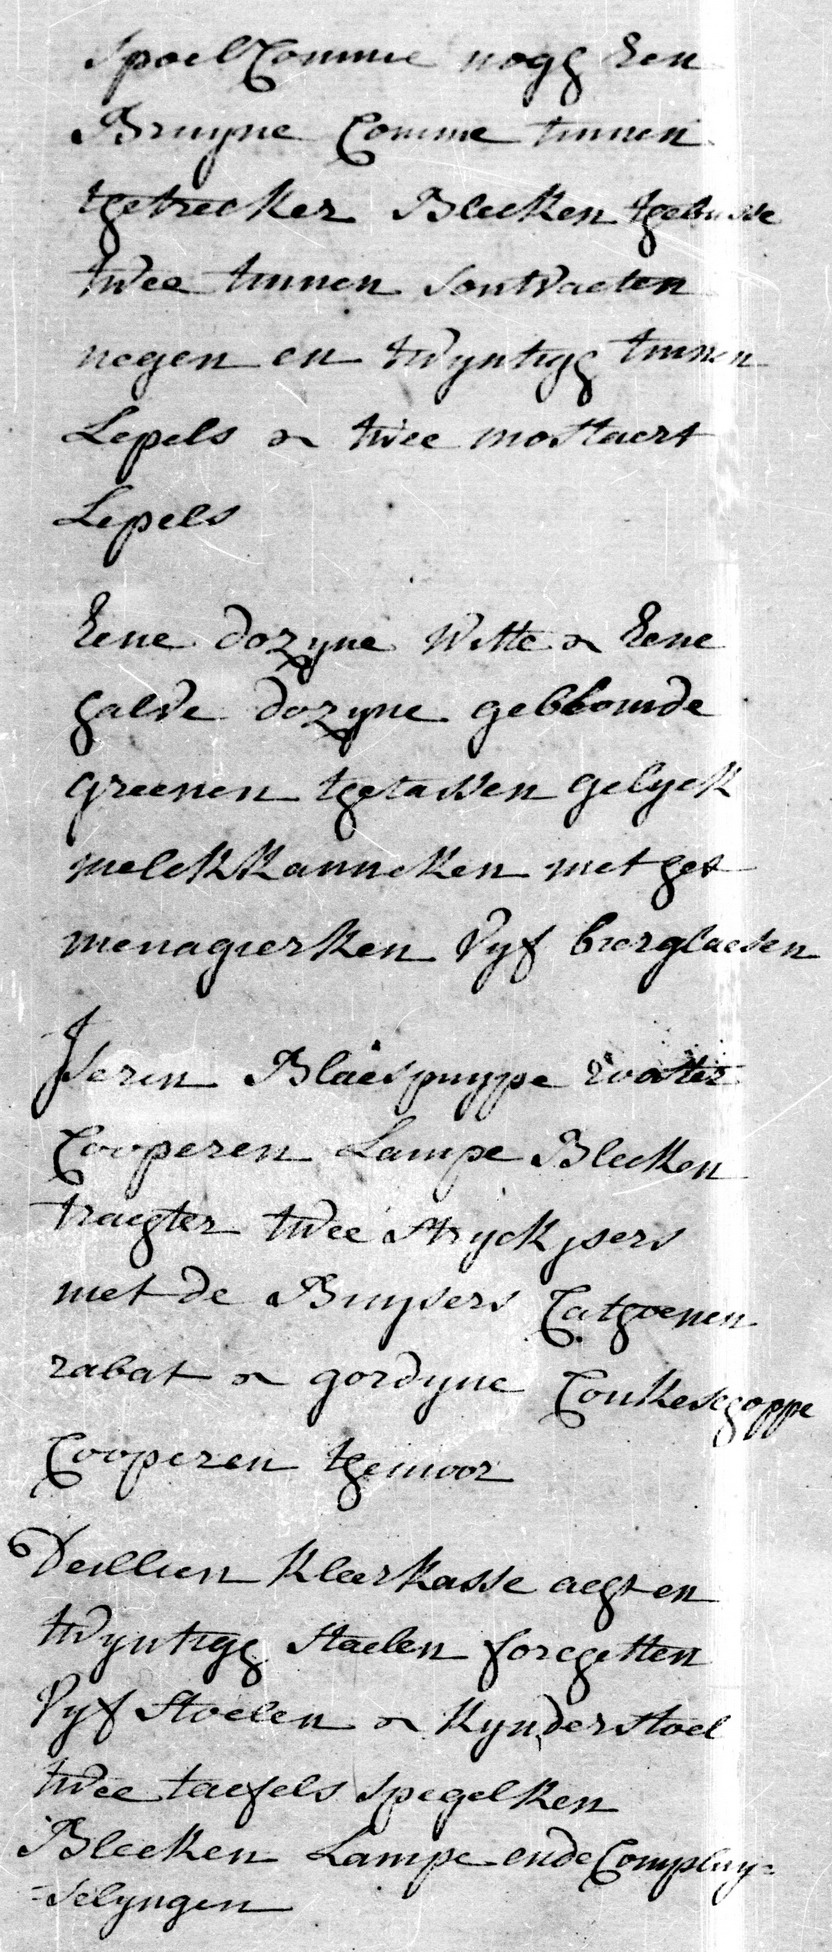 spoelComme nogg Een
Bruyne Comme tinnen
thetrecker Blecken thebusse
twee tinnen soutvaeten
negen en twyntigg tinnen
Lepels en twee mostaert
Lepels
Eene dozyne Witte en Eene
halve dozyne gebloomde
greenen thetassen gelyck
melckkanneken met het
menagierken vyf bierglaesen
Iseren Blaespuype rooster
Cooperen Lampe Blecken
traegter twee stryckysers
met de Buysers Cathoenen
rabat en gordyne Coukeschoppe
Cooperen themoor
Deillien kleerkasse aegt en
twyntigg staelen forchetten
vyf stoelen en kynderstoel
twee taefels spegelken
Blecken Lampe ende Compluy=
=selyngen